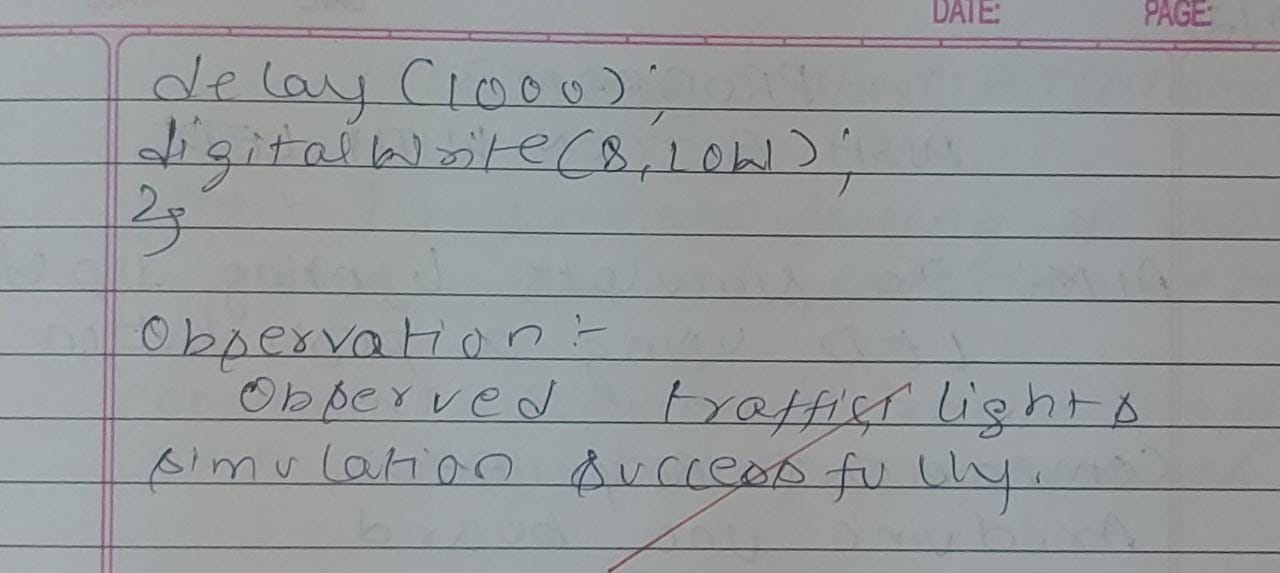 DATE: PAGE:
delay (1000);
digitalWrite(8, LOW);
}
Observation :-
Observed traffic lights
simulation successfully.